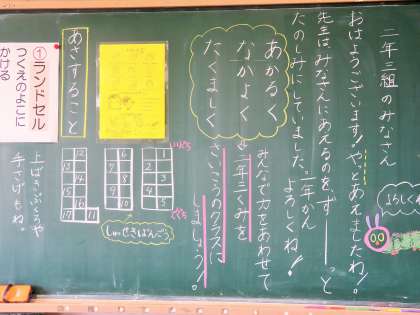 二年三組のみなさん
おはようございます!やっとあえましたね!
先生はみなさんにあえるのをずーーっと
たのしみにしていました。一年かん
よろしくね!
よろしくね
あかるく
なかよく
たくましく
みんなで力をあわせて
二年三くみを
さいこうのクラスに
しましょう!。
あさすること
①ランドセル
つくえのよこに
かける
上ばきぶくろや
手さげもね。
いりぐち
でぐち
しゅせきばんごう
1
2
3
4
5
6
7
8
9
10
11
12
13
14
15
16
17